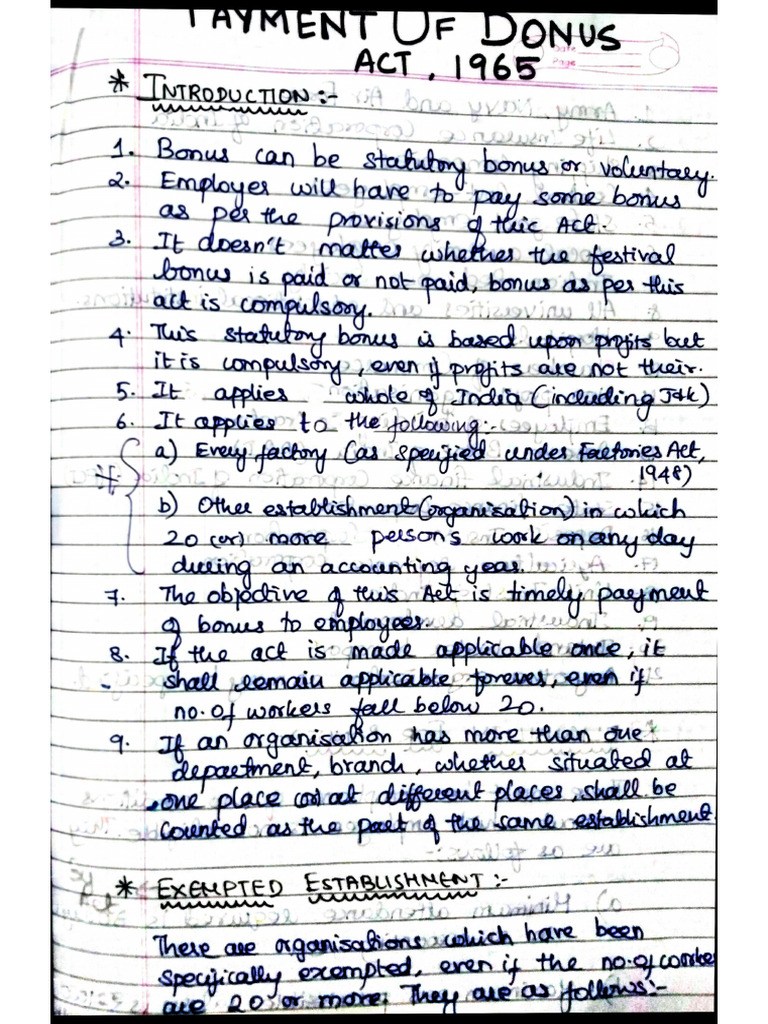 PAYMENT OF BONUS
ACT, 1965
Date
Page
* INTRODUCTION :-
1. Bonus can be statutory bonus or voluntary.
2. Employer will have to pay some bonus
as per the provisions of this Act.
3. It doesn't matter whether the festival
bonus is paid or not paid, bonus as per this
act is compulsory.
4. This statutory bonus is based upon profits but
it is compulsory, even if profits are not their.
5. It applies whole of India (including J&K)
6. It applies to the following:-
if
a) Every factory (as specified under Factories Act,
1948)
b) Other establishment (organisation) in which
20 (or) more persons work on any day
during an accounting year.
7. The objective of this Act is timely payment
of bonus to employees.
8. If the act is made applicable once, it
shall remain applicable forever, even if
no. of workers fall below 20.
9. If an organisation has more than one
department, branch, whether situated at
one place (or) at different places, shall be
counted as the part of the same establishment.
* EXEMPTED ESTABLISHMENT :-
There are organisations which have been
specifically exempted, even if the no. of worker
are 20 or more. They are as follows:-